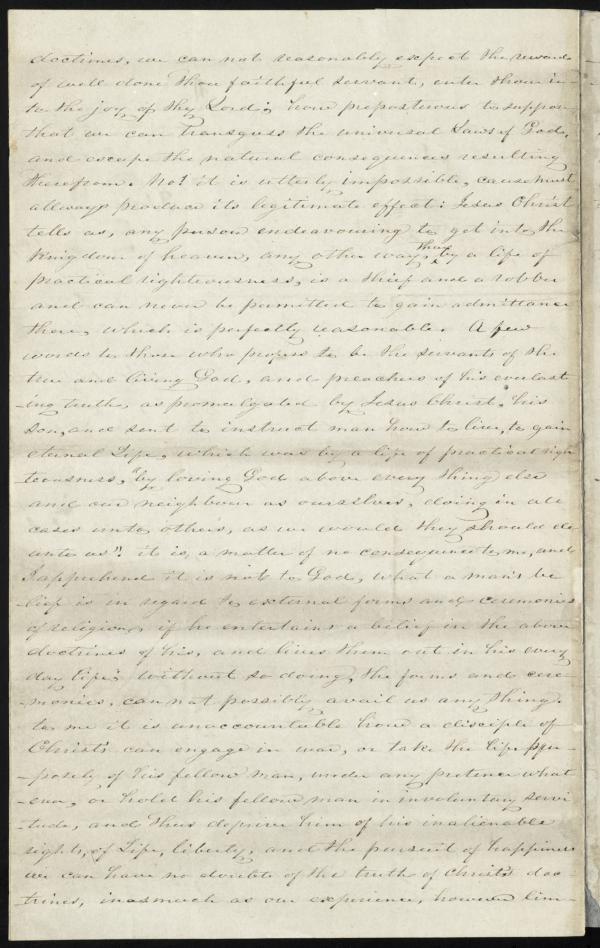 doctrines, we can not reasonably expect the reward
of well done thou faithful servant, enter thou in
to the joy of thy Lord; how preposterous to suppose
that we can transgress the universal Laws of God,
and escape the natural consequences resulting
therefrom. No! it is utterly impossible, cause must
allways produce its legitimate effect: Jesus Christ
tells us, any person endeavouring to get into the
Kingdom of heaven, any other way, than by a life of
practical righteousness, is a thief and a robber
and can never be permitted to gain admittance
there, which is perfectly reasonable. A few
words to those who profess to be the servants of the
true and living God, and preachers of his everlast
-ing truth, as promulgated by Jesus Christ, his
son, and sent to instruct man how to live, to gain
eternal Life, which was by a life of practical righ
-teousness, "by loving God above every thing else
and our neighbour as ourselves, doing in all
cases unto others, as we would they should do
unto us". it is, a matter of no consequence to me, and
I apprehend it is not to God, what a man's be
-lief is in regard to external forms and ceremonies
of religion, if he entertains a belief in the above
doctrines of his, and lives them out in his every
day life; without so doing, the forms and cere
-monies, can not possibly avail us any thing.
to me it is unaccountable how a disciple of
Christ's can engage in war, or take the life pur-
-posely of his fellow man, under any pretence what
-ever, or hold his fellow man in involuntary servi
-tude, and thus deprive him of his inalienable
rights, of Life, liberty, and the pursuit of happiness
we can have no doubts of the truth of Christ's doc-
-trines, inasmuch as our experience, however lim-